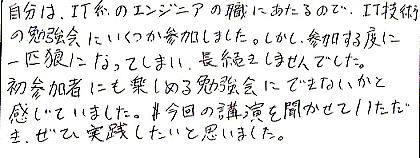 自分は、IT系のエンジニアの職にあたるので、IT技術
の勉強会にいくつか参加しました。しかし、参加する度に
一匹狼になってしまい、長続きしませんでした。
初参加者にも楽しめる勉強会にできないかと
感じていました。今回の講演を聞かせていただ
き、ぜひ実践したいと思いました。